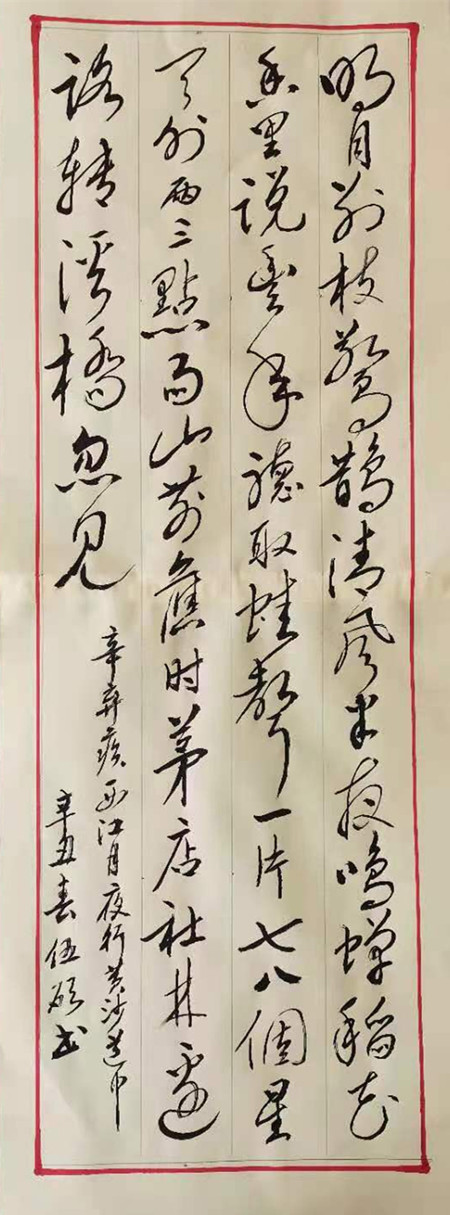 明月别枝驚鹊清风半夜鸣蝉稻花
香里说豐年聽取蛙聲一片七八個星
天外兩三點雨山前舊时茅店社林邊
路轉溪橋忽见
辛弃疾西江月夜行黄沙道中
辛丑春伍书